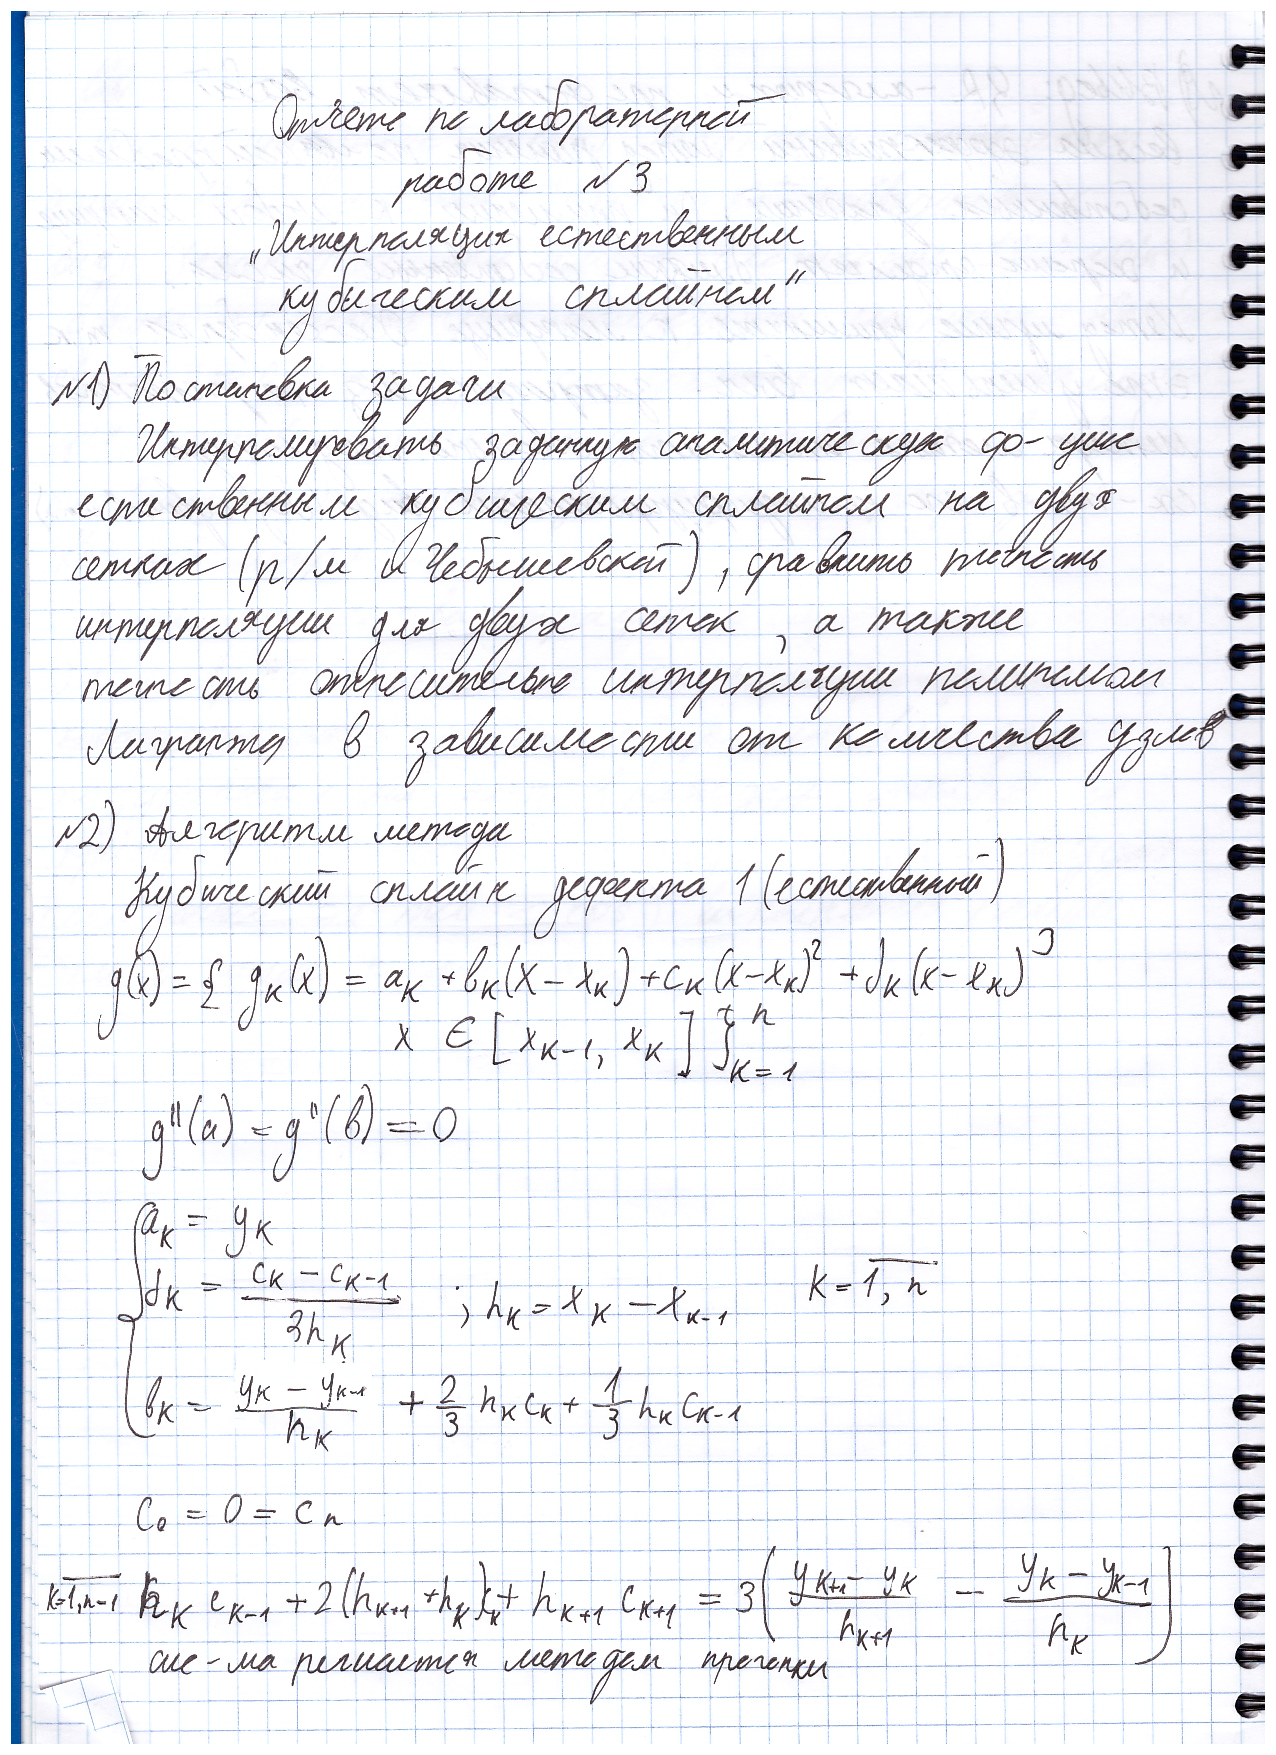 Отчет по лабораторной
работе №3
„Интерполяция естественным
кубическим сплайном"
№1) Постановка задачи
Интерполировать заданную аналитическую ф-цию
естественным кубическим сплайном на двух
сетках (р/м и Чебышевской), сравнить точность
интерполяции для двух сеток, а также
точность относительно интерполяции полиномом
Лагранжа в зависимости от количества узлов
№2) Алгоритм метода
Кубический сплайн дефекта 1 (естественный)
g(x) = { g_k(x) = a_k + b_k(x - x_k) + c_k(x - x_k)² + d_k(x - x_k)³
x ∈ [x_{k-1}, x_k] }_{k=1}^n
g''(a) = g''(b) = 0
a_k = y_k
d_k = (c_k - c_{k-1}) / (3h_k) ; h_k = x_k - x_{k-1} k = \overline{1, n}
b_k = (y_k - y_{k-1}) / h_k + 2/3 h_k c_k + 1/3 h_k c_{k-1}
c_0 = 0 = c_n
k = \overline{1, n-1} h_k c_{k-1} + 2(h_{k+1} + h_k)c_k + h_{k+1} c_{k+1} = 3((y_{k+1} - y_k) / h_{k+1} - (y_k - y_{k-1}) / h_k)
сис-ма решается методом прогонки